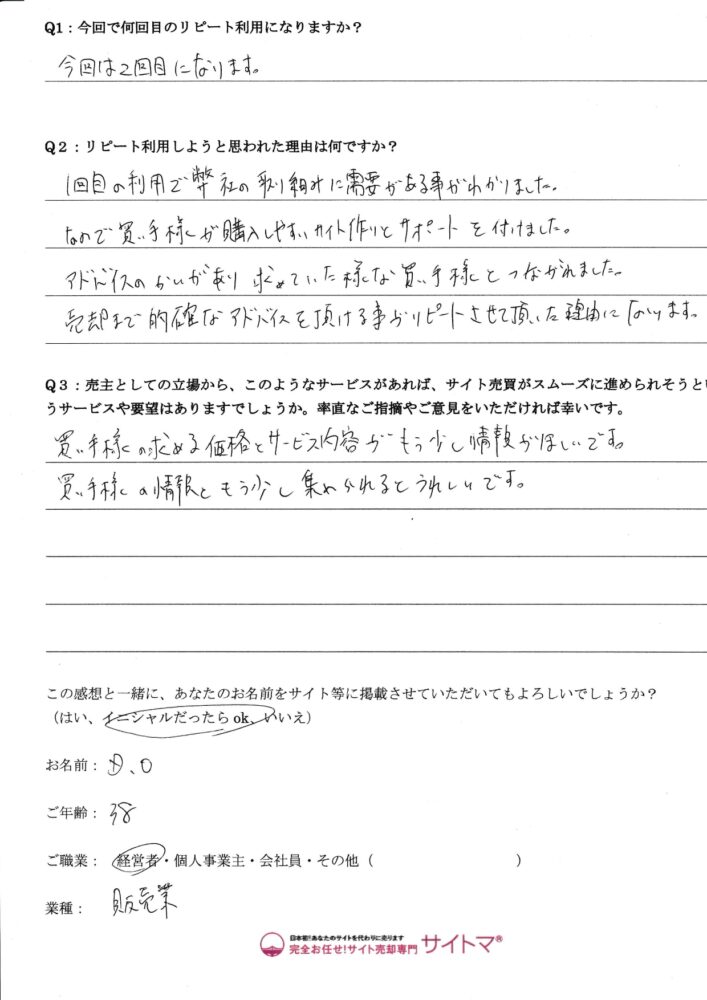 Q1：今回で何回目のリピート利用になりますか？
今回は2回目になります。
Q2：リピート利用しようと思われた理由は何ですか？
1回目の利用で弊社の取り組みに需要がある事がわかりました。
なので買い手様が購入しやすいサイト作りとサポートを付けました。
アドバイスのかいがあり求めていた様な買い手様とつながれました。
売却まで的確なアドバイスを頂ける事がリピートさせて頂いた理由になります。
Q3：売主としての立場から、このようなサービスがあれば、サイト売買がスムーズに進められそうとい
うサービスや要望はありますでしょうか。率直なご指摘やご意見をいただければ幸いです。
買い手様の求める価格とサービス内容がもう少し情報がほしいです。
買い手様の情報ももう少し集められるとうれしいです。
この感想と一緒に、あなたのお名前をサイト等に掲載させていただいてもよろしいでしょうか？
（はい、イニシャルだったらok、いいえ）
お名前： D.O
ご年齢： 38
ご職業： 経営者・個人事業主・会社員・その他（ ）
業種： 販売業
日本初!!あなたのサイトを代わりに売ります
完全お任せ!サイト売却専門 サイトマ®